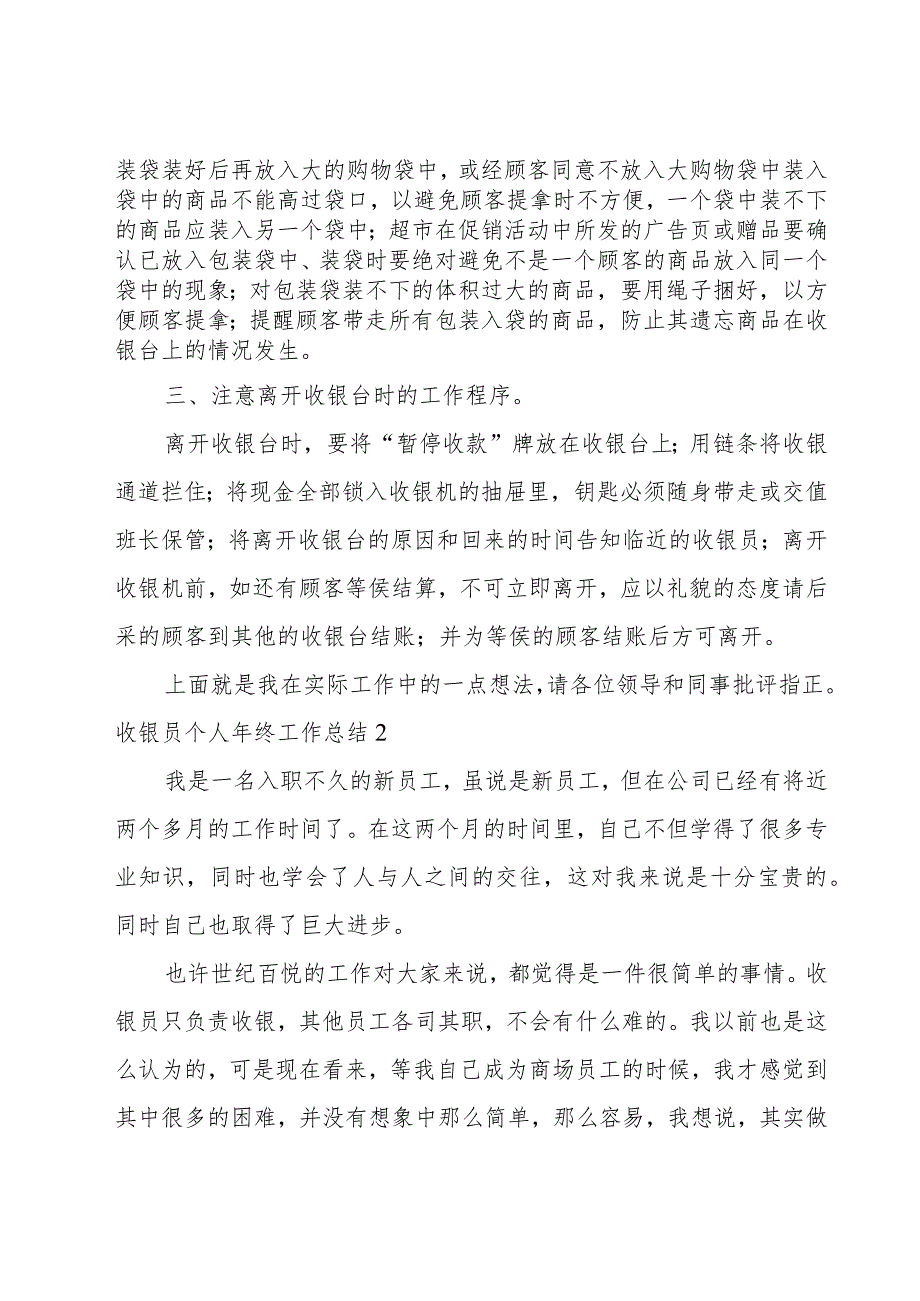 装袋装好后再放入大的购物袋中，或经顾客同意不放入大购物袋中装入
袋中的商品不能高过袋口，以避免顾客提拿时不方便，一个袋中装不下
的商品应装入另一个袋中；超市在促销活动中所发的广告页或赠品要确
认已放入包装袋中、装袋时要绝对避免不是一个顾客的商品放入同一个
袋中的现象；对包装袋装不下的体积过大的商品，要用绳子捆好，以方
便顾客提拿；提醒顾客带走所有包装入袋的商品，防止其遗忘商品在收
银台上的情况发生。
三、注意离开收银台时的工作程序。
离开收银台时，要将“暂停收款”牌放在收银台上；用链条将收银
通道拦住；将现金全部锁入收银机的抽屉里，钥匙必须随身带走或交值
班长保管；将离开收银台的原因和回来的时间告知临近的收银员；离开
收银机前，如还有顾客等侯结算，不可立即离开，应以礼貌的态度请后
采的顾客到其他的收银台结账；并为等侯的顾客结账后方可离开。
上面就是我在实际工作中的一点想法，请各位领导和同事批评指正。
收银员个人年终工作总结 2
我是一名入职不久的新员工，虽说是新员工，但在公司已经有将近
两个多月的工作时间了。在这两个月的时间里，自己不但学得了很多专
业知识，同时也学会了人与人之间的交往，这对我来说是十分宝贵的。
同时自己也取得了巨大进步。
也许世纪百悦的工作对大家来说，都觉得是一件很简单的事情。收
银员只负责收银，其他员工各司其职，不会有什么难的。我以前也是这
么认为的，可是现在看来，等我自己成为商场员工的时候，我才感觉到
其中很多的困难，并没有想象中那么简单，那么容易，我想说，其实做